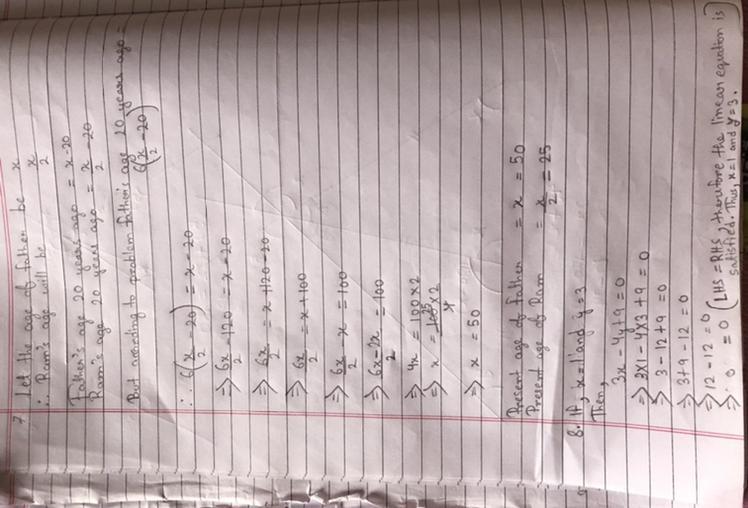 7 Let the age of father be x
∴ Ram's age will be x/2
Father's age 20 years ago = x-20
Ram's age 20 years ago = x/2 -20
But according to problem father's age 20 years ago =
6(x/2 -20)
∴ 6(x/2 -20) = x-20
⇒ 6x/2 -120 = x-20
⇒ 6x/2 = x+120-20
⇒ 6x/2 = x+100
⇒ 6x/2 - x = 100
⇒ 6x-2x/2 = 100
⇒ 4x = 100×2
⇒ x = 100×2/4
⇒ x = 50
Present age of father = x = 50
Present age of Ram = x/2 = 25
8. If, x=1 and y=3
Then,
3x - 4y+9=0
⇒ 3×1-4×3+9=0
⇒ 3-12+9=0
⇒ 3+9-12=0
⇒ 12-12=0
⇒ 0 = 0 (LHS = RHS, therefore the linear equation is
satisfied. Thus, x=1 and y=3.)